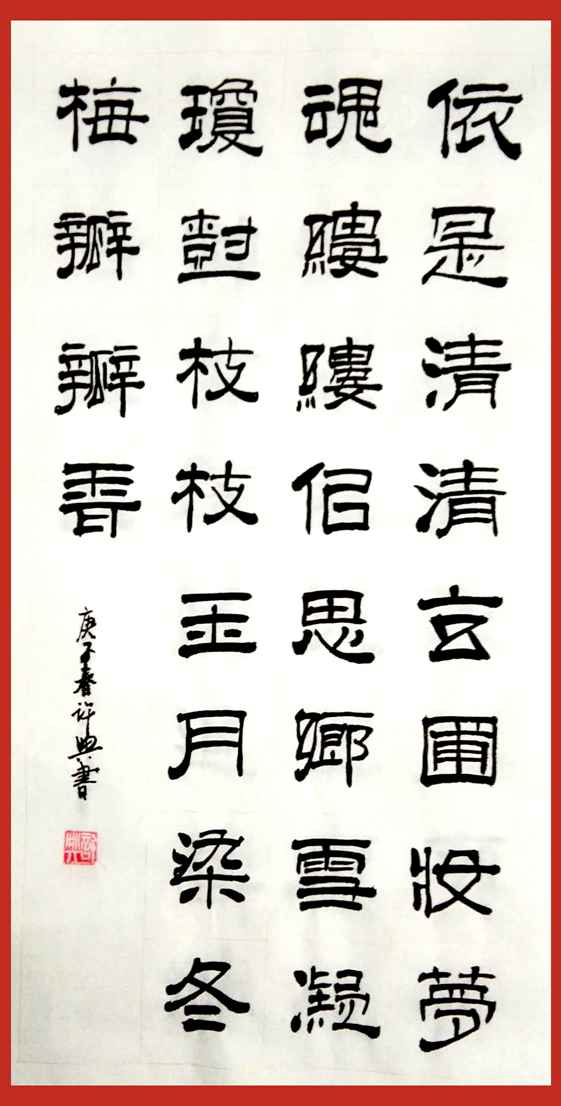 依是清清玄圃妝夢
魂縷縷侣思鄉雪凝
瓊樹枝枝玉月染冬
梅瓣瓣香
庚子春许典書